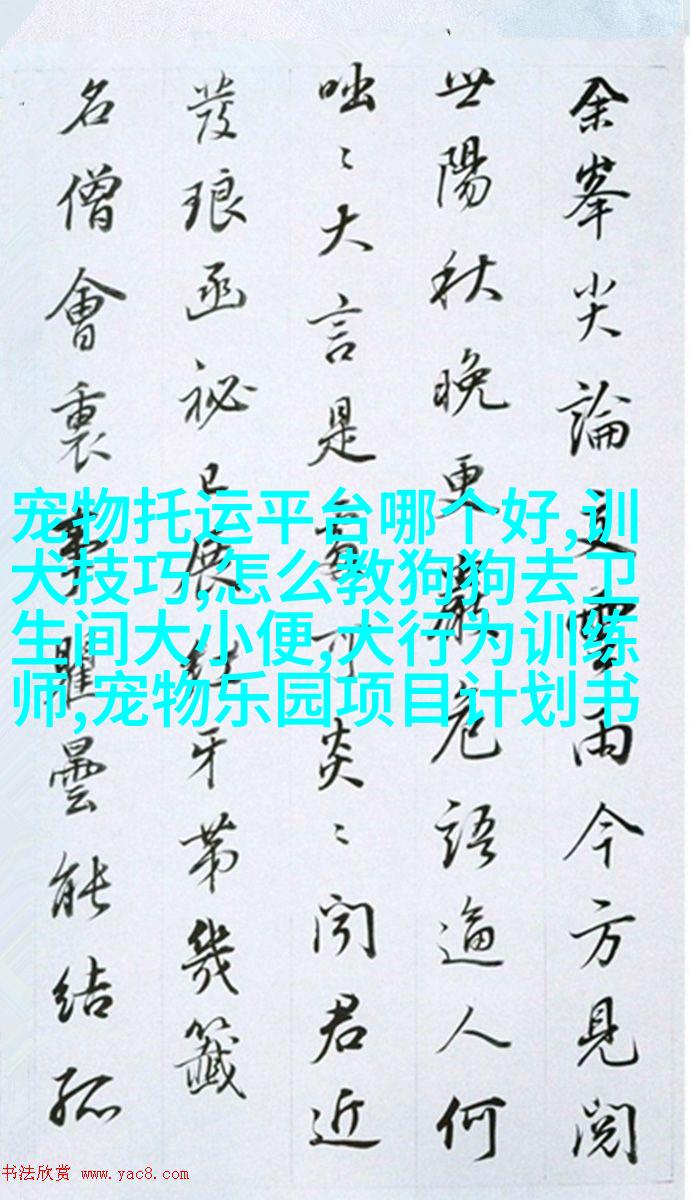 余峯尖論文雲雨今方見閱
世陽秋晚更嚴危語逼人何
咄〻大言是可炎〻聞君近
發琅函祕已展紅牙第幾籤
名僧會裏事瞿曇能結孤
宠物托运平台哪个好,训
犬技巧,怎么教狗狗去卫
生间大小便,犬行为训练
师,宠物乐园项目计划书
书法欣赏 www.yac8.com